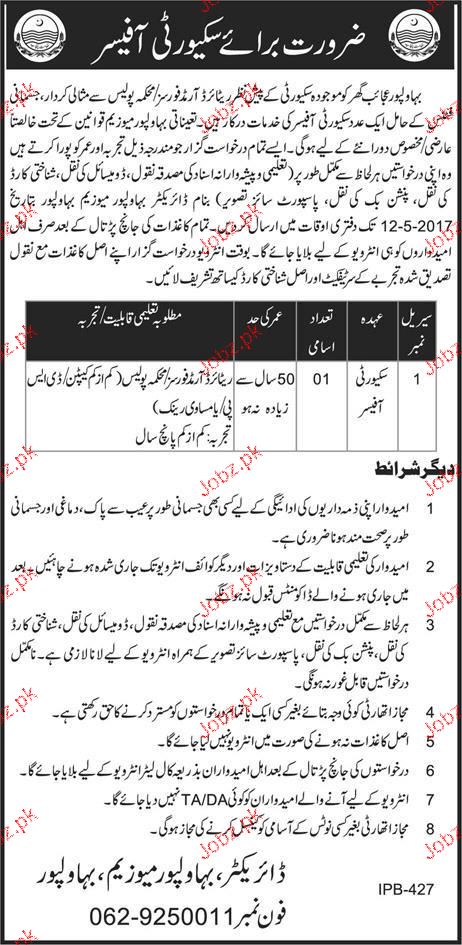 ضرورت برائے سکیورٹی آفیسر
بہاولپور عجائب گھر کو موجودہ سکیورٹی کے پیش نظر ریٹائرڈ آرمڈ فورسز/محکمہ پولیس سے مثالی کردار، جسمانی
فٹنس کے حامل ایک عدد سکیورٹی آفیسر کی خدمات درکار ہیں۔ تعیناتی بہاولپور میوزیم قوانین کے تحت خالصتاً
عارضی/مخصوص دورانئے کے لیے ہوگی۔ ایسے تمام درخواست گزار جو مندرجہ ذیل تجربہ اور عمر کو پورا کرتے ہیں
وہ اپنی درخواستیں ہر لحاظ سے مکمل طور پر (تعلیمی و پیشہ ورانہ اسناد کی مصدقہ نقول، ڈومیسائل کی نقل، شناختی کارڈ
کی نقل، پنشن بک کی نقل، پاسپورٹ سائز تصویر) بنام ڈائریکٹر بہاولپور میوزیم بہاولپور بتاریخ
12-5-2017 تک دفتری اوقات میں ارسال کر دیں۔ تمام کاغذات کی جانچ پڑتال کے بعد صرف اہل
امیدواروں کو ہی انٹرویو کے لیے بلایا جائے گا۔ بوقت انٹرویو درخواست گزار اپنے اصل کاغذات مع نقول
تصدیق شدہ تجربے کے سرٹیفکیٹ اور اصل شناختی کارڈ کیساتھ تشریف لائیں۔
سیریل نمبر
عہدہ
تعداد اسامی
عمر کی حد
مطلوبہ تعلیمی قابلیت/تجربہ
1
سکیورٹی آفیسر
01
50 سال سے زیادہ نہ ہو
ریٹائرڈ آرمڈ فورسز/محکمہ پولیس (کم از کم کیپٹن/ڈی ایس
پی/یا مساوی رینک)
تجربہ: کم از کم پانچ سال
دیگر شرائط
1 امیدوار اپنی ذمہ داریوں کی ادائیگی کے لیے کسی بھی جسمانی طور پر عیب سے پاک، دماغی اور جسمانی
طور پر صحت مند ہونا ضروری ہے۔
2 امیدوار کی تعلیمی قابلیت کے دستاویزات اور دیگر کوائف انٹرویو تک جاری شدہ ہونے چاہئیں۔ بعد
میں جاری ہونے والے ڈاکومنٹس قبول نہ ہونگے۔
3 ہر لحاظ سے مکمل درخواستیں مع تعلیمی و پیشہ ورانہ اسناد کی مصدقہ نقول، ڈومیسائل کی نقل، شناختی کارڈ
کی نقل، پنشن بک کی نقل، پاسپورٹ سائز تصویر کے ہمراہ انٹرویو کے لیے لانا لازمی ہے۔ نامکمل
درخواستیں قابل غور نہ ہونگی۔
4 مجاز اتھارٹی کوئی وجہ بتائے بغیر کسی ایک یا تمام درخواستوں کو مسترد کرنے کا حق رکھتی ہے۔
5 اصل کاغذات نہ ہونے کی صورت میں انٹرویو نہیں لیا جائے گا۔
6 درخواستوں کی جانچ پڑتال کے بعد اہل امیدواران بذریعہ کال لیٹر انٹرویو کے لیے بلایا جائے گا۔
7 انٹرویو کے لیے آنے والے امیدواران کو کوئی TA/DA نہیں دیا جائے گا۔
8 مجاز اتھارٹی بغیر کسی نوٹس کے آسامی کو کینسل کرنے کی مجاز ہوگی۔
ڈائریکٹر، بہاولپور میوزیم، بہاولپور
فون نمبر 062-9250011
IPB-427
Jobz.pk